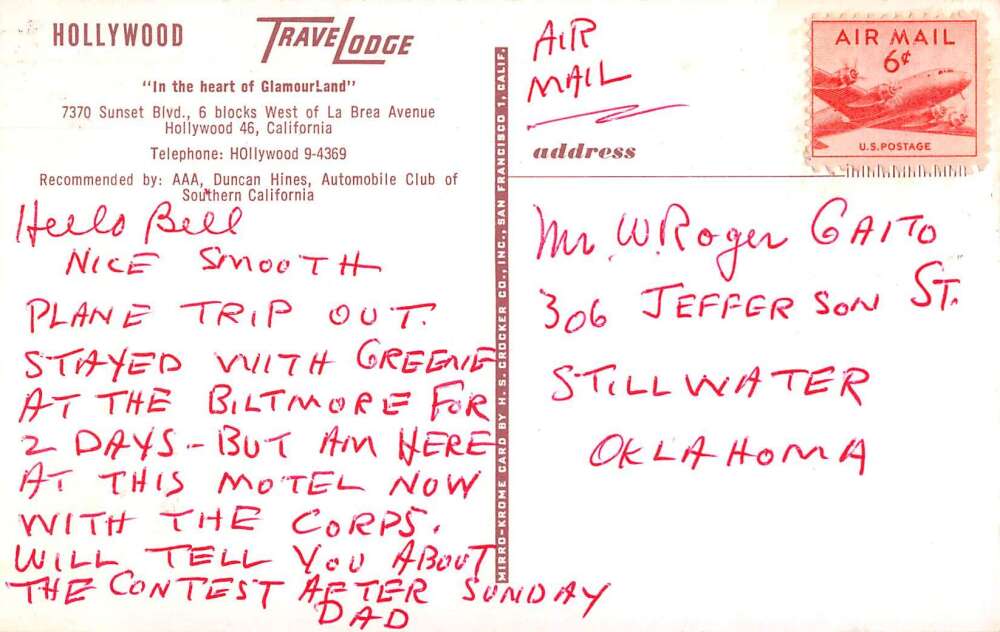 HOLLYWOOD TRAVELODGE
"In the heart of GlamourLand"
7370 Sunset Blvd., 6 blocks West of La Brea Avenue
Hollywood 46, California
Telephone: HOllywood 9-4369
Recommended by: AAA, Duncan Hines, Automobile Club of
Southern California
Hello Bill
NICE SMOOTH
PLANE TRIP OUT.
STAYED WITH GREENIE
AT THE BILTMORE FOR
2 DAYS - BUT AM HERE
AT THIS MOTEL NOW
WITH THE CORPS.
WILL TELL YOU ABOUT
THE CONTEST AFTER SUNDAY
DAD
MIRRO-KROME CARD BY H. S. CROCKER CO., INC., SAN FRANCISCO 1, CALIF.
AIR
MAIL
address
AIR MAIL
6¢
U.S. POSTAGE
Mr W. Roger GAITO
306 JEFFERSON ST.
STILLWATER
OKLAHOMA